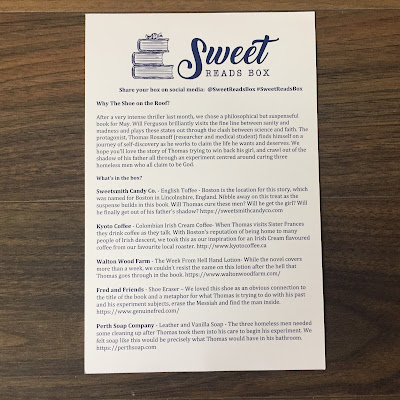 Sweet
READS BOX
Share your box on social media: @SweetReadsBox #SweetReadsBox
Why The Shoe on the Roof?
After a very intense thriller last month, we chose a philosophical but suspenseful
book for May. Will Ferguson brilliantly visits the fine line between sanity and
madness and plays these states out through the clash between science and faith. The
protagonist, Thomas Rosanoff (researcher and medical student) finds himself on a
journey of self-discovery as he works to claim the life he wants and deserves. We
hope you'll love the story of Thomas trying to win back his girl, and crawl out of the
shadow of his father all through an experiment centred around curing three
homeless men who all claim to be God.
What's in the box?
Sweetsmith Candy Co. - English Toffee - Boston is the location for this story, which
was named for Boston in Lincolnshire, England. Nibble away on this treat as the
suspense builds in this book. Will Thomas cure these men? Will he get the girl? Will
he finally get out of his father's shadow? https://sweetsmithcandy.com
Kyoto Coffee - Colombian Irish Cream Coffee- When Thomas visits Sister Frances
they drink coffee as they talk. With Boston's reputation of being home to many
people of Irish descent, we took this as our inspiration for an Irish Cream flavoured
coffee from our favourite local roaster. http://www.kyotocoffee.ca
Walton Wood Farm - The Week From Hell Hand Lotion- While the novel covers
more than a week, we couldn't resist the name on this lotion after the hell that
Thomas goes through in the book. https://www.waltonwoodfarm.com/
Fred and Friends - Shoe Eraser – We loved this shoe as an obvious connection to
the title of the book and a metaphor for what Thomas is trying to do with his past
and his experiment subjects; erase the Messiah and find the man inside.
https://www.genuinefred.com/
Perth Soap Company - Leather and Vanilla Soap - The three homeless men needed
some cleaning up after Thomas took them into his care to begin his experiment. We
felt soap like this would be precisely what Thomas would have in his bathroom.
https://perthsoap.com